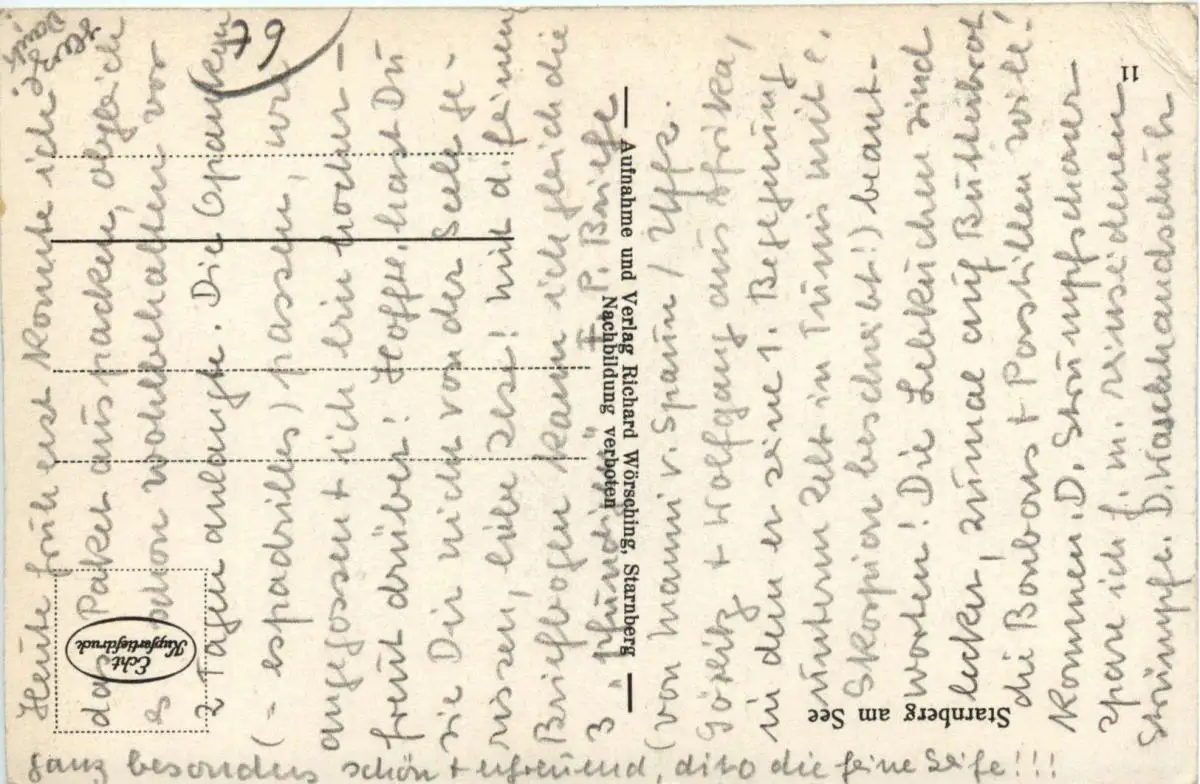 Heute früh erst konnte ich
das Paket auspacken, obgleich
es schon wohlbehalten vor
2 Tagen anlangte. Die Opanken
(- espadrilles) passen, wie
angegossen + ich bin hocher-
freut drüber! Hoffe, hast Du
sie Dir nicht von der Seele ge-
rissen, liebe Resi! Mit d. feinen
Briefbogen kann ich gleich die
3 „pfündi P. Briefe
(von Manni v. Spaun / Uffz.
Göritz + Wolfgang aus Afrika,
in dem er seine 1. Begegnung
unterm Zelt in Tunis mit e.
Skorpion beschreibt!) beant-
worten! Die Lebkuchen sind
lecker, zumal auf Butterbrot
die Bonbons + Pastillen will!
kommen. D. Strumpfschoner
spare ich f. m. reinseidenen
Strümpfe. D. Waschhandschuh
ganz besonders schön + erfreuend, dito die feine Seife!!!
Herz
Dank!
79
Echt
Kupfertiefdruck
Aufnahme und Verlag Richard Wörsching, Starnberg
Nachbildung verboten
Starnberg am See
11